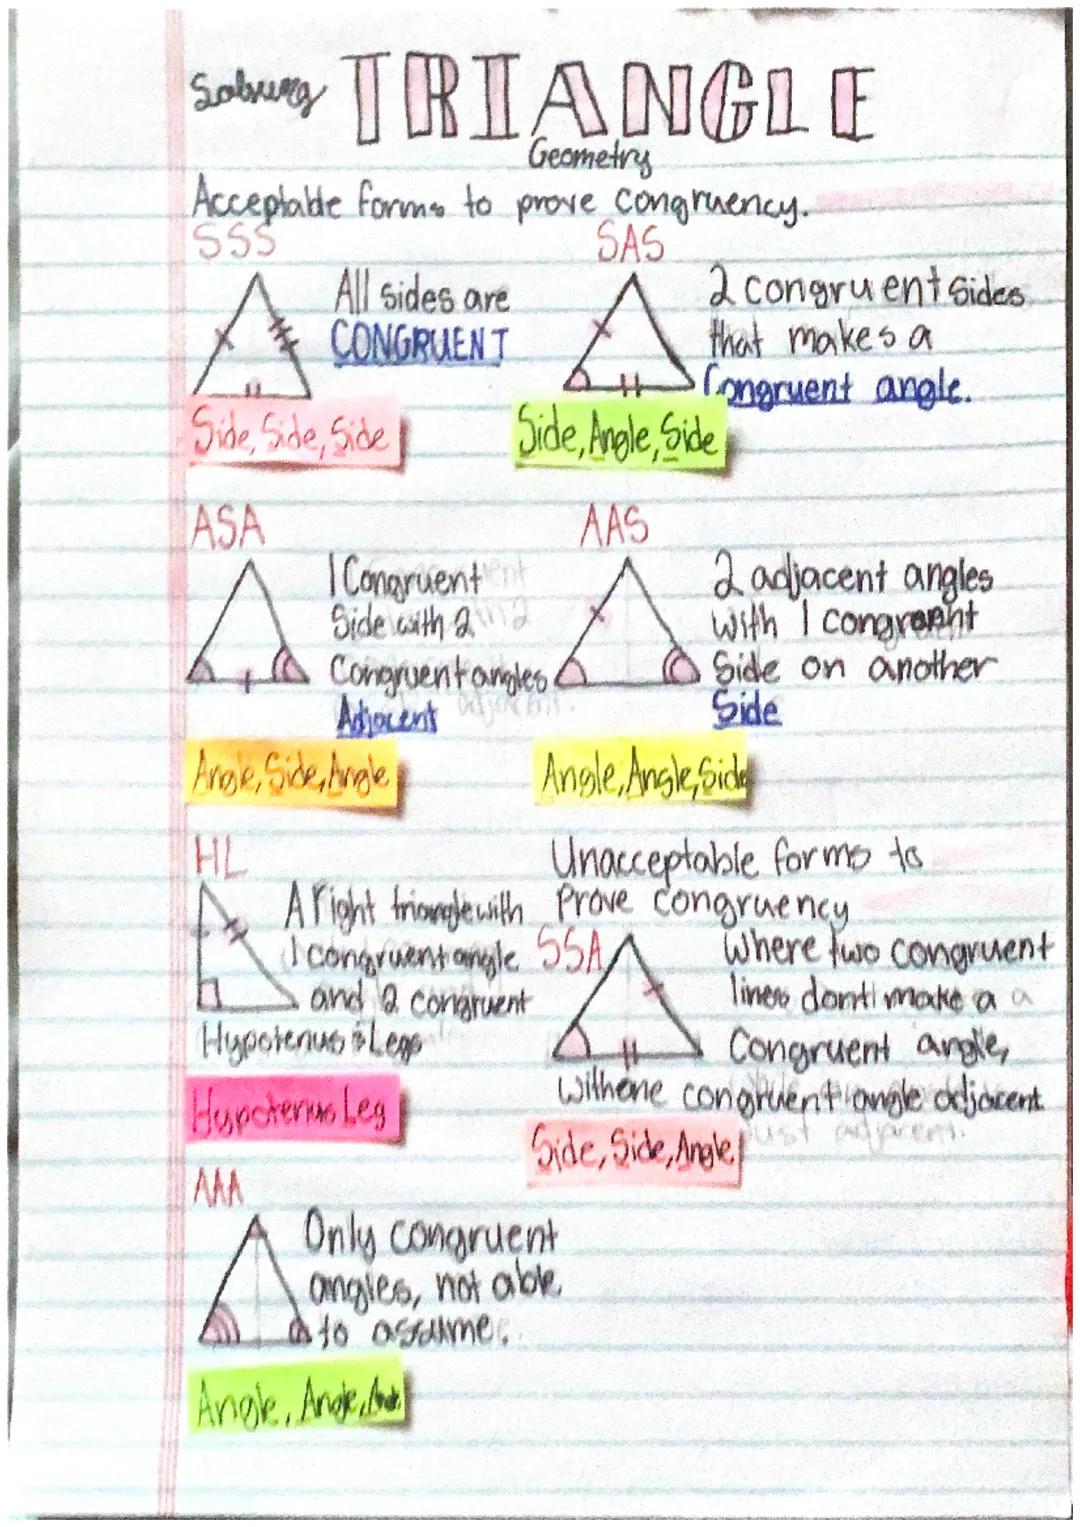 Solving TRIANGLE
Geometry
Acceptable forms to prove congruency.
SSS
All sides are
CONGRUENT
Side, Side, Side
SAS
2 congruent sides
that makes a
Congruent angle.
Side, Angle, Side
ASA
1 Congruent
Side with 2
Congruent angles
Adjacent
Angle, Side, Angle
AAS
2 adjacent angles
with 1 congruent
Side on another
Side
Angle, Angle, Side
HL
A right triangle with
1 congruent angle
and 2 congruent
Hypotenus & Legs
Hypotenus Leg
Unacceptable forms to
Prove congruency
SSA
Where two congruent
lines dont make a
Congruent angle,
with one congruent angle adjacent
Side, Side, Angle
AAA
Only congruent
angles, not able
to assume.
Angle, Angle, Angle